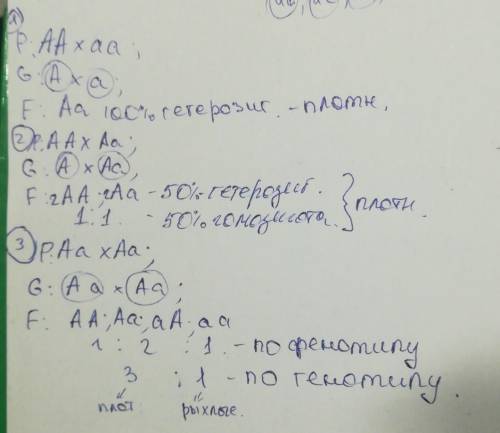 1)
P: AA x aa ;
G: A x a ;
F: Aa 100% гетерозиг. - плотн.
2) P. AA x Aa ;
G: A x Aa ,
F: 2AA ; 2Aa - 50% гетерозиг. } плотн.
1:1. - 50% гомозигота.
3
P: Aa x Aa ;
G: A a x A a ;
F: AA ; Aa ; aA ; aa
1 : 2 : 1. - по фенотипу
3 : 1 - по генотипу.
плот. рыхлые.